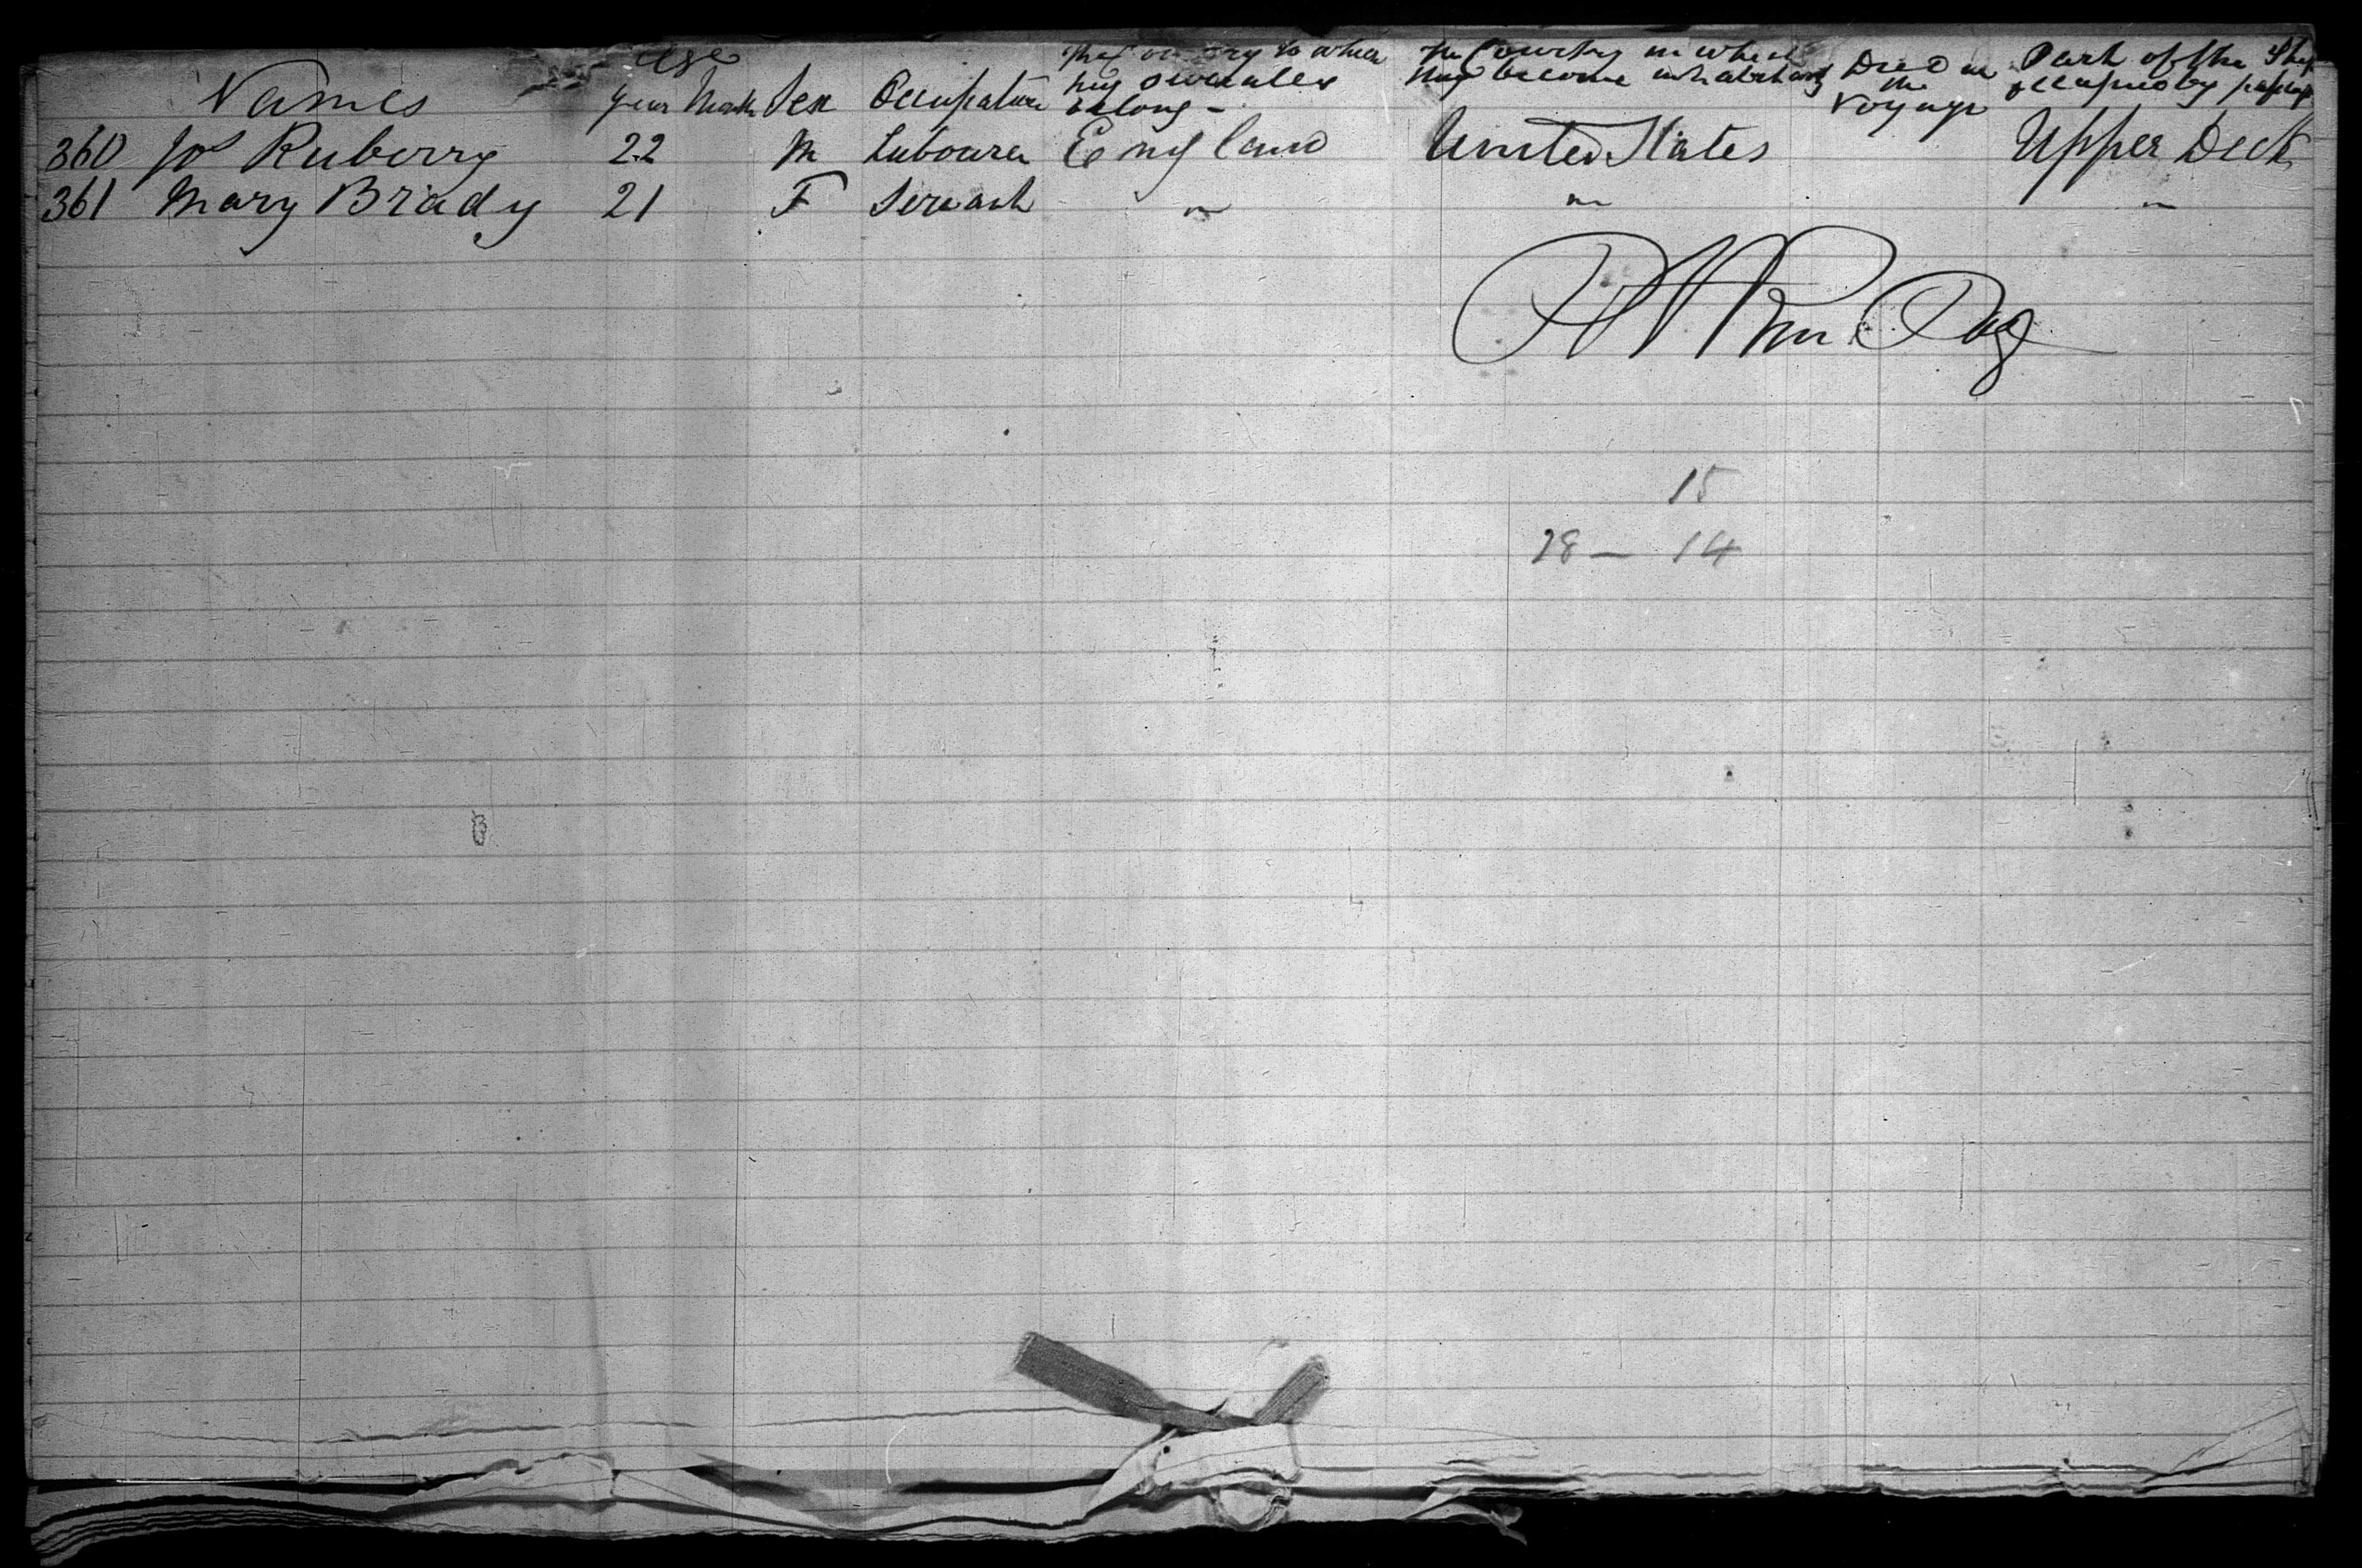 Age
Names Year Month Sex Occupation The Country to which they severally belong - The Country in which they become inhabitants Died on the Voyage Part of the Ship occupied by passengers
360 Jos Ruberry 22 M Labourer England United States Upper Deck
361 Mary Brady 21 F Servant " " "
15
28 — 14